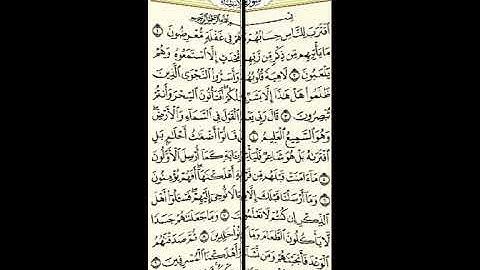 ٱقْتَرَبَ لِلنَّاسِ حِسَابُهُمْ وَهُمْ فِى غَفْلَةٍ مُّعْرِضُونَ ١
مَا يَأْتِيهِم مِّن ذِكْرٍ مِّن رَّبِّهِم مُّحْدَثٍ إِلَّا ٱسْتَمَعُوهُ وَهُمْ
يَلْعَبُونَ ٢ لَاهِيَةً قُلُوبُهُمْ وَأَسَرُّوا۟ ٱلنَّجْوَى ٱلَّذِينَ
ظَلَمُوا۟ هَلْ هَٰذَآ إِلَّا بَشَرٌ مِّثْلُكُمْ أَفَتَأْتُونَ ٱلسِّحْرَ وَأَنتُمْ
تُبْصِرُونَ ٣ قَالَ رَبِّى يَعْلَمُ ٱلْقَوْلَ فِى ٱلسَّمَآءِ وَٱلْأَرْضِ
وَهُوَ ٱلسَّمِيعُ ٱلْعَلِيمُ ٤ قَالُوٓا۟ أَضْغَٰثُ أَحْلَٰمٍ بَلِ
ٱفْتَرَىٰهُ بَلْ هُوَ شَاعِرٌ كَمَآ أُرْسِلَ ٱلْأَوَّلُونَ
٥ مَآ ءَامَنَتْ قَبْلَهُم مِّن قَرْيَةٍ أَهْلَكْنَٰهَآ أَفَهُمْ يُؤْمِنُونَ
٦ وَمَآ أَرْسَلْنَا قَبْلَكَ إِلَّا رِجَالًا نُّوحِىٓ إِلَيْهِمْ فَسْـَٔلُوٓا۟ أَهْلَ
ٱلذِّكْرِ إِن كُنتُمْ لَا تَعْلَمُونَ ٧ وَمَا جَعَلْنَٰهُمْ جَسَدًا
لَّا يَأْكُلُونَ ٱلطَّعَامَ وَمَا كَانُوا۟ خَٰلِدِينَ ٨ ثُمَّ صَدَقْنَٰهُمُ
ٱلْوَعْدَ فَأَنجَيْنَٰهُمْ وَمَن نَّشَآءُ وَأَهْلَكْنَا ٱلْمُسْرِفِينَ ٩